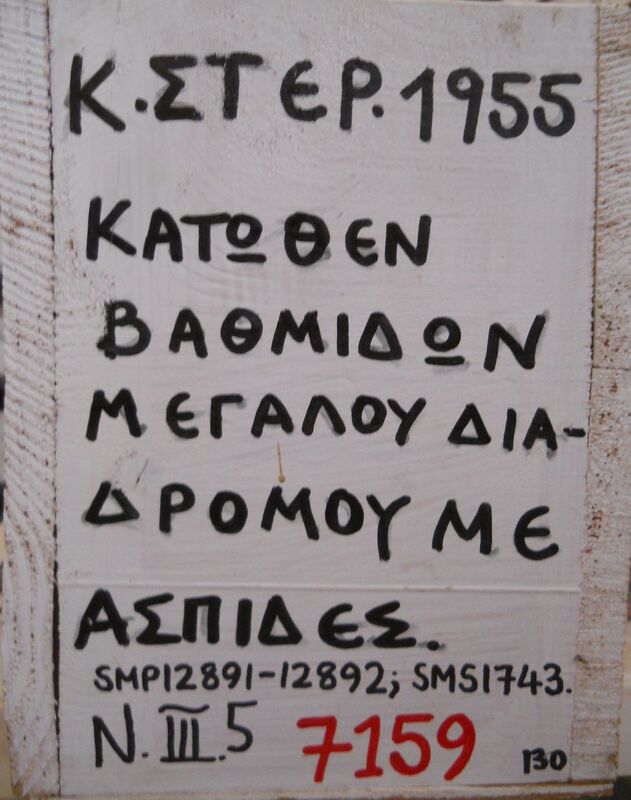 Κ.ΣΤΕΡ.1955
ΚΑΤΩΘΕΝ
ΒΑΘΜΙΔΩΝ
ΜΕΓΑΛΟΥ ΔΙΑ-
ΔΡΟΜΟΥ ΜΕ
ΑΣΠΙΔΕΣ.
SMP12891-12892; SMS1743.
N. III.5 7159 130